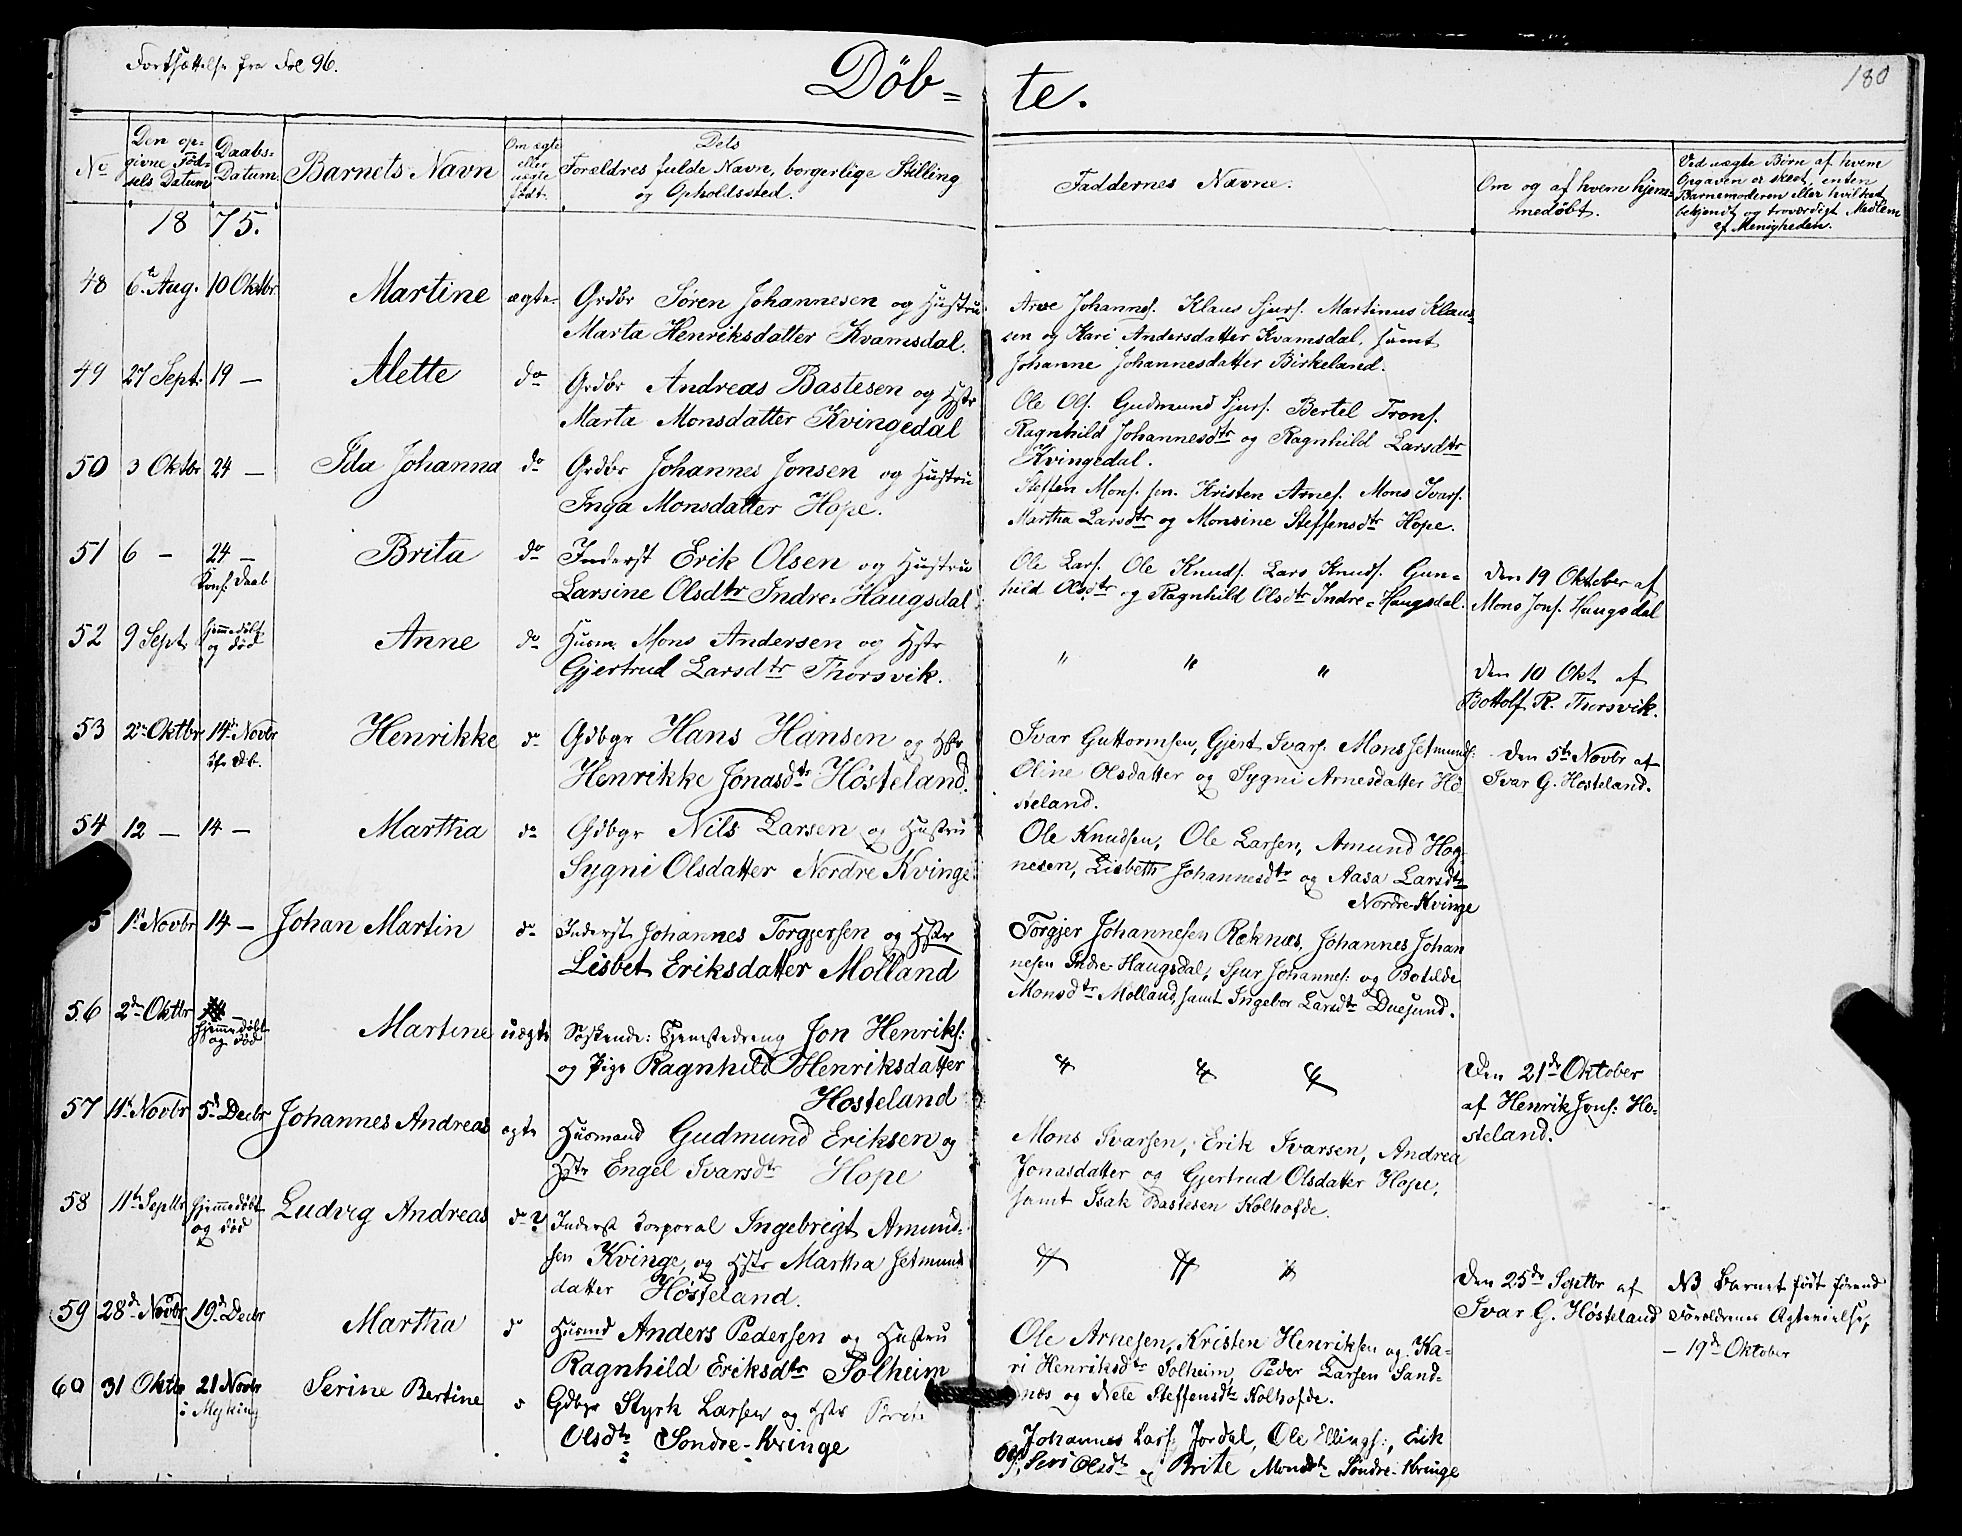 Fortsættelse fra Fol 96.
180
Døb= te.
No
Den op-
givne Fød-
sels Datum
Daabs-
Datum
Barnets Navn
Om ægte
eller
uægte
født.
Dets
Forældres fulde Navn, borgerlige Stilling
og Opholdssted.
Faddernes Navne.
Om og af hvem hjem-
medøbt.
Ved uægte Børn af hvem
Opgaven er skeet, enten
Barnemoderen eller hvilket
bekjendt og troværdigt Medlem
af Menigheden.
18 75.
48 6te Aug. 10 Oktbr Martine ægte. Grdbr Søren Johannesen og Hustru
Marta Henriksdatter Kvamsdal.
Arne Johannes. Klaus Sjurs. Martinus Klaus-
sen og Kari Andersdatter Kvamsdal, samt
Johanne Johannesdatter Birkeland.
49 27 Sept. 19 — Alette do Grdbr Andreas Bastesen og Hstr
Marta Monsdatter Kvingedal
Ole Ols. Gudmund Sjurs. Bertel Trons.
Ragnhild Johannesdtr og Ragnhild Larsdtr
Kvingedal.
50 3 Oktbr 24 — Ida Johanna do Grdbr Johannes Jonsen og Hustru
Inga Monsdatter Hope.
Steffen Mons. sen. Kristen Arnes. Mons Ivars.
Martha Larsdtr og Monsine Steffensdtr Hope.
51 6 — 24 — Brita do Inderst Erik Olsen og Hustru
Konf. Daab
Larsine Olsdtr Indre-Haugsdal
Ole Lars. Ole Knuds. Lars Knuds. Gun-
hild Olsdtr og Ragnhild Olsdtr Indre=Haugsdal.
Den 19 Oktober af
Mons Jons. Haugsdal
52 9 Sept. hjemmedøbt
og død
Anne do Husm. Mons Andersen og Hstr
Gjertrud Larsdtr Thorsvik.
" " "
Den 10 Okt af
Bottolf R. Thorsvik.
53 2den Oktbr 14de Novbr Henrikke do Gdbgr Hans Hansen og Hstr
Henrikke Jonasdtr Høsteland.
Ivar Guttormsen, Gjert Ivars. Mons Jetmunds.
Oline Olsdatter og Sygni Arnesdatter Hø-
steland.
Den 5te Novbr af
Ivar G. Hosteland.
54 12 — 14 — Martha do Gdbgr Nils Larsen og Hustru
Sygni Olsdatter Nordre Kvinge
Ole Knudsen, Ole Larsen, Amund Hog-
nesen, Lisbeth Johannesdtr og Aasa Larsdtr
Nordre-Kvinge
5 1ste Novbr 14 — Johan Martin do Inderst Johannes Torgjersen og Hstr
Lisbet Eriksdatter Molland
Torgjer Johannesen Reknes, Johannes Johan
nesen Indre-Haugsdal, Sjur Johannes. og Botilde
Monsdtr Molland, samt Ingebor Larsdtr Duesund.
56 2den Oktbr hjemmedøbt
og død
Martine uægte Søskende: Tjenstedreng Jon Henriks:
og Pige Ragnhild Henriksdatter
Hosteland
" " "
Den 21de Oktober
af Henrik Jons: Ho-
steland.
57 11te Novbr 5te Decbr Johannes Andreas ægte Husmand Gudmund Eriksen og
Hstr Engel Ivarsdtr Hope
Mons Ivarsen, Erik Ivarsen, Andrea
Jonasdatter og Gjertrud Olsdatter Hope,
samt Isak Bastesen Kolhofde.
58 11te Septbr hjemmedøbt
og død
Ludvig Andreas do? Inderst Korporal Ingebrigt Amund-
sen Kvinge, og Hstr Martha Jetmunds
datter Høsteland.
" " "
Den 25de Septbr af
Ivar G. Høsteland
NB Barnet født førend
Forældrenes Ægtevielse,
— 19de Oktober
59 28de Novbr 19de Decbr Martha do Husmd Anders Pedersen og Hustru
Ragnhild Eriksdtr Solheim
Ole Arnesen, Kristen Henriksen og Ka-
ri Henriksdtr Solheim, Peder Larsen Sand-
næs og Nele Steffensdtr Kolhofde.
60 31 Oktbr 21 Novbr Serine Bertine Gdbgr Styrk Larsen og Hstr Brita
i Myking
Olsdtr Søndre-Kvinge
Johannes Lars. Jordal, Ole Ellings:, Erik
Ols. Seri Olsdtr og Brite Monsdtr Søndre-Kvinge